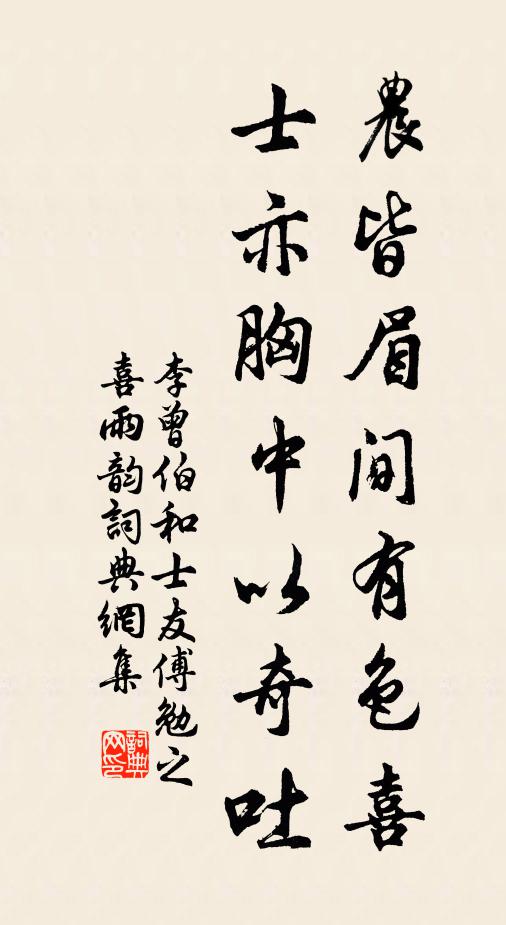 農皆眉間有色喜
士亦胸中以奇吐
李曾伯和士友傅勉之
喜雨韵詞典網集
詞典网印